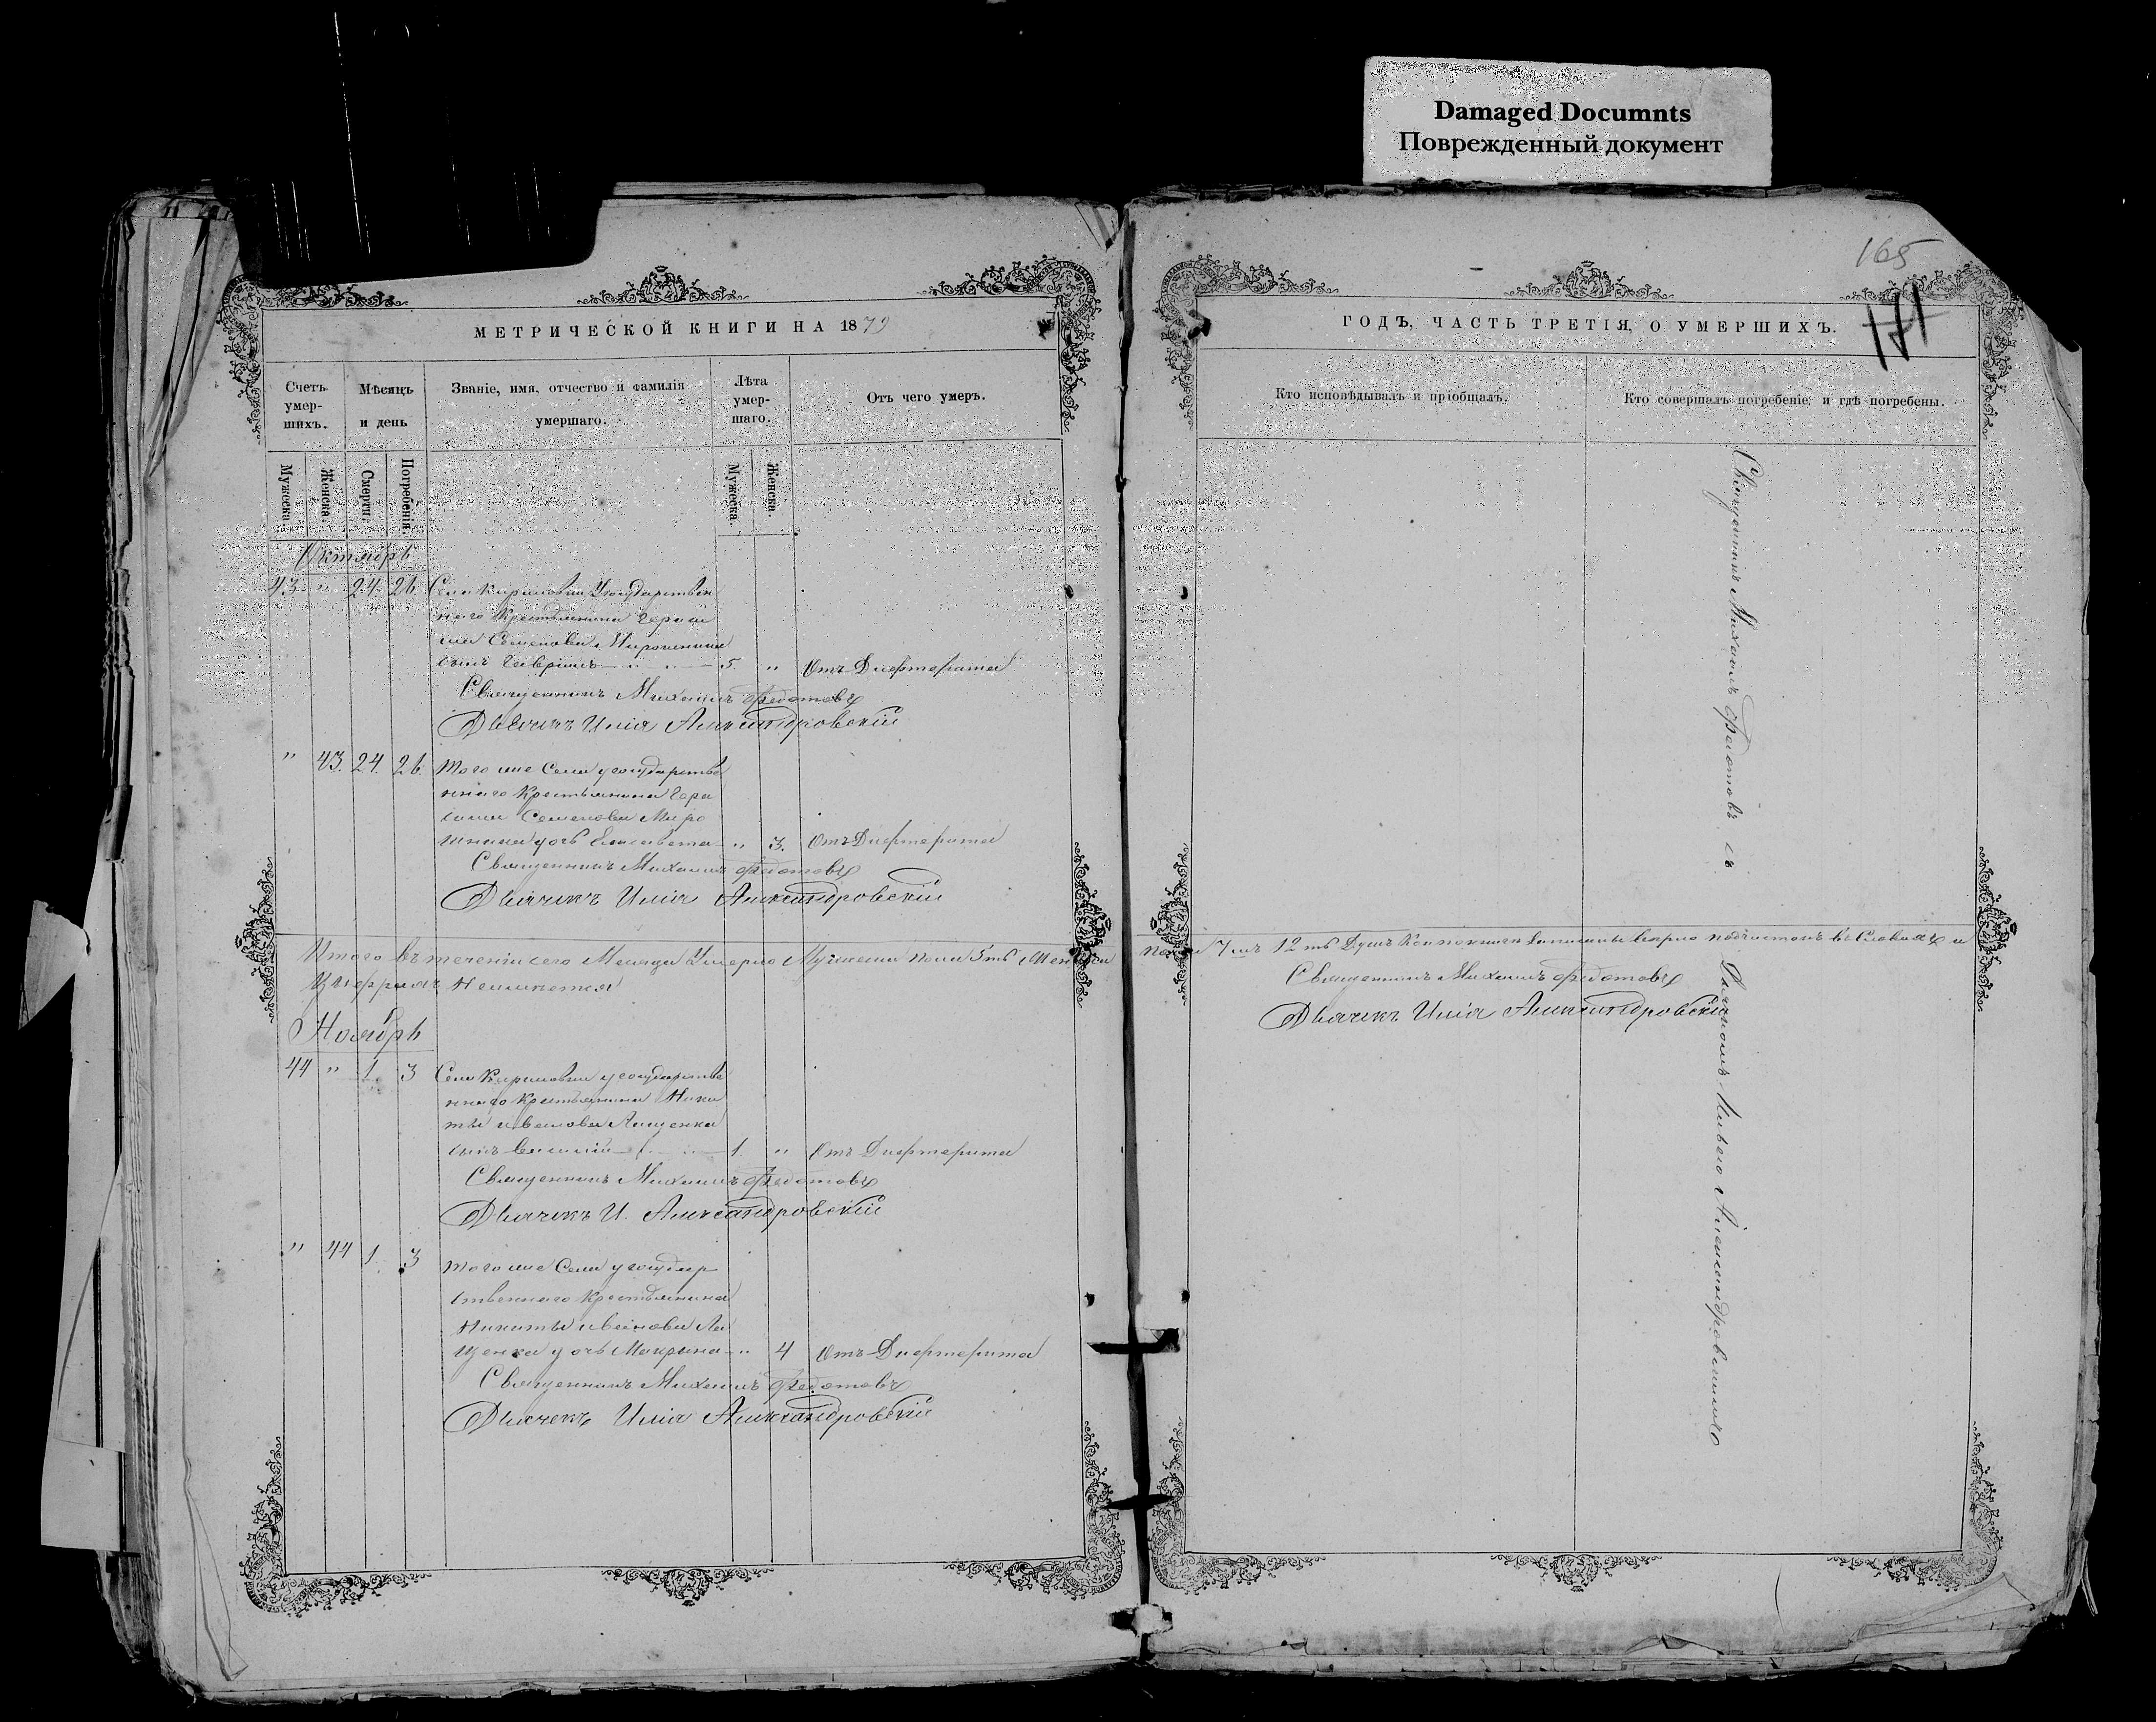 Damaged Documnts
Поврежденный документ
165
171
МЕТРИЧЕСКОЙ КНИГИ НА 1879
Счетъ умер-шихъ.
Мѣсяцъ и день
Званіе, имя, отчество и фамилія умершаго.
Лѣта умер-шаго.
Отъ чего умеръ.
Мужеска.
Женска.
Смерти.
Погребенія.
Мужеска.
Женска.
Октябрь
43. " 24. 26 Села Кириловки Государствен
наго Крестьянина Гераси
ма Семенова Мирошника
сынъ Гавріилъ 5. " Отъ Дифтерита
Священникъ Михаилъ Федотовъ
Дьячекъ Илія Александровскій
" 43. 24. 26. Того же Села у государстве
ннаго Крестьянина Гера
сима Семенова Миро
шника дочь Елисавета " 3. Отъ Дифтерита
Священникъ Михаилъ Федотовъ
Дьячекъ Илія Александровскій
Итого въ теченіи сего Месяца Умерло Мужеска пола 5ть Женска
Цыфрахъ
Ноябрь
44 " 1. 3 Села Кириловки у государстве
ннаго Крестьянина Ники
ты Иванова Лященка
сынъ Василій 1. " Отъ Дифтерита
Священникъ Михаилъ Федотовъ
Дьячекъ И. Александровскій
" 44 1 3 Того же Села у государ
ственнаго Крестьянина
Никиты Иванова Ля
щенка дочь Макрина " 4 Отъ Дифтерита
Священникъ Михаилъ Федотовъ
Дьячекъ Илія Александровскій
ГОДЪ, ЧАСТЬ ТРЕТІЯ, О УМЕРШИХЪ.
Кто исповѣдывалъ и пріобщалъ.
Кто совершалъ погребеніе и гдѣ погребены.
пола 7мь 12ть Душъ
Священникъ Михаилъ Федотовъ
Дьячекъ Илія Александровскій
Священникъ Михаилъ Федотовъ съ Дьячкомъ Иліею Александровскимъ